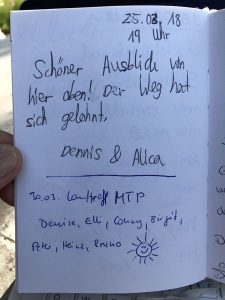 25.03.18
19 Uhr
Schöner Ausblick von
hier oben! Der Weg hat
sich gelohnt.
Dennis &
30.03. Lauftreff MTP
Denise, Elli, Conny, Birgit,
Peter, Heinz, Bruno